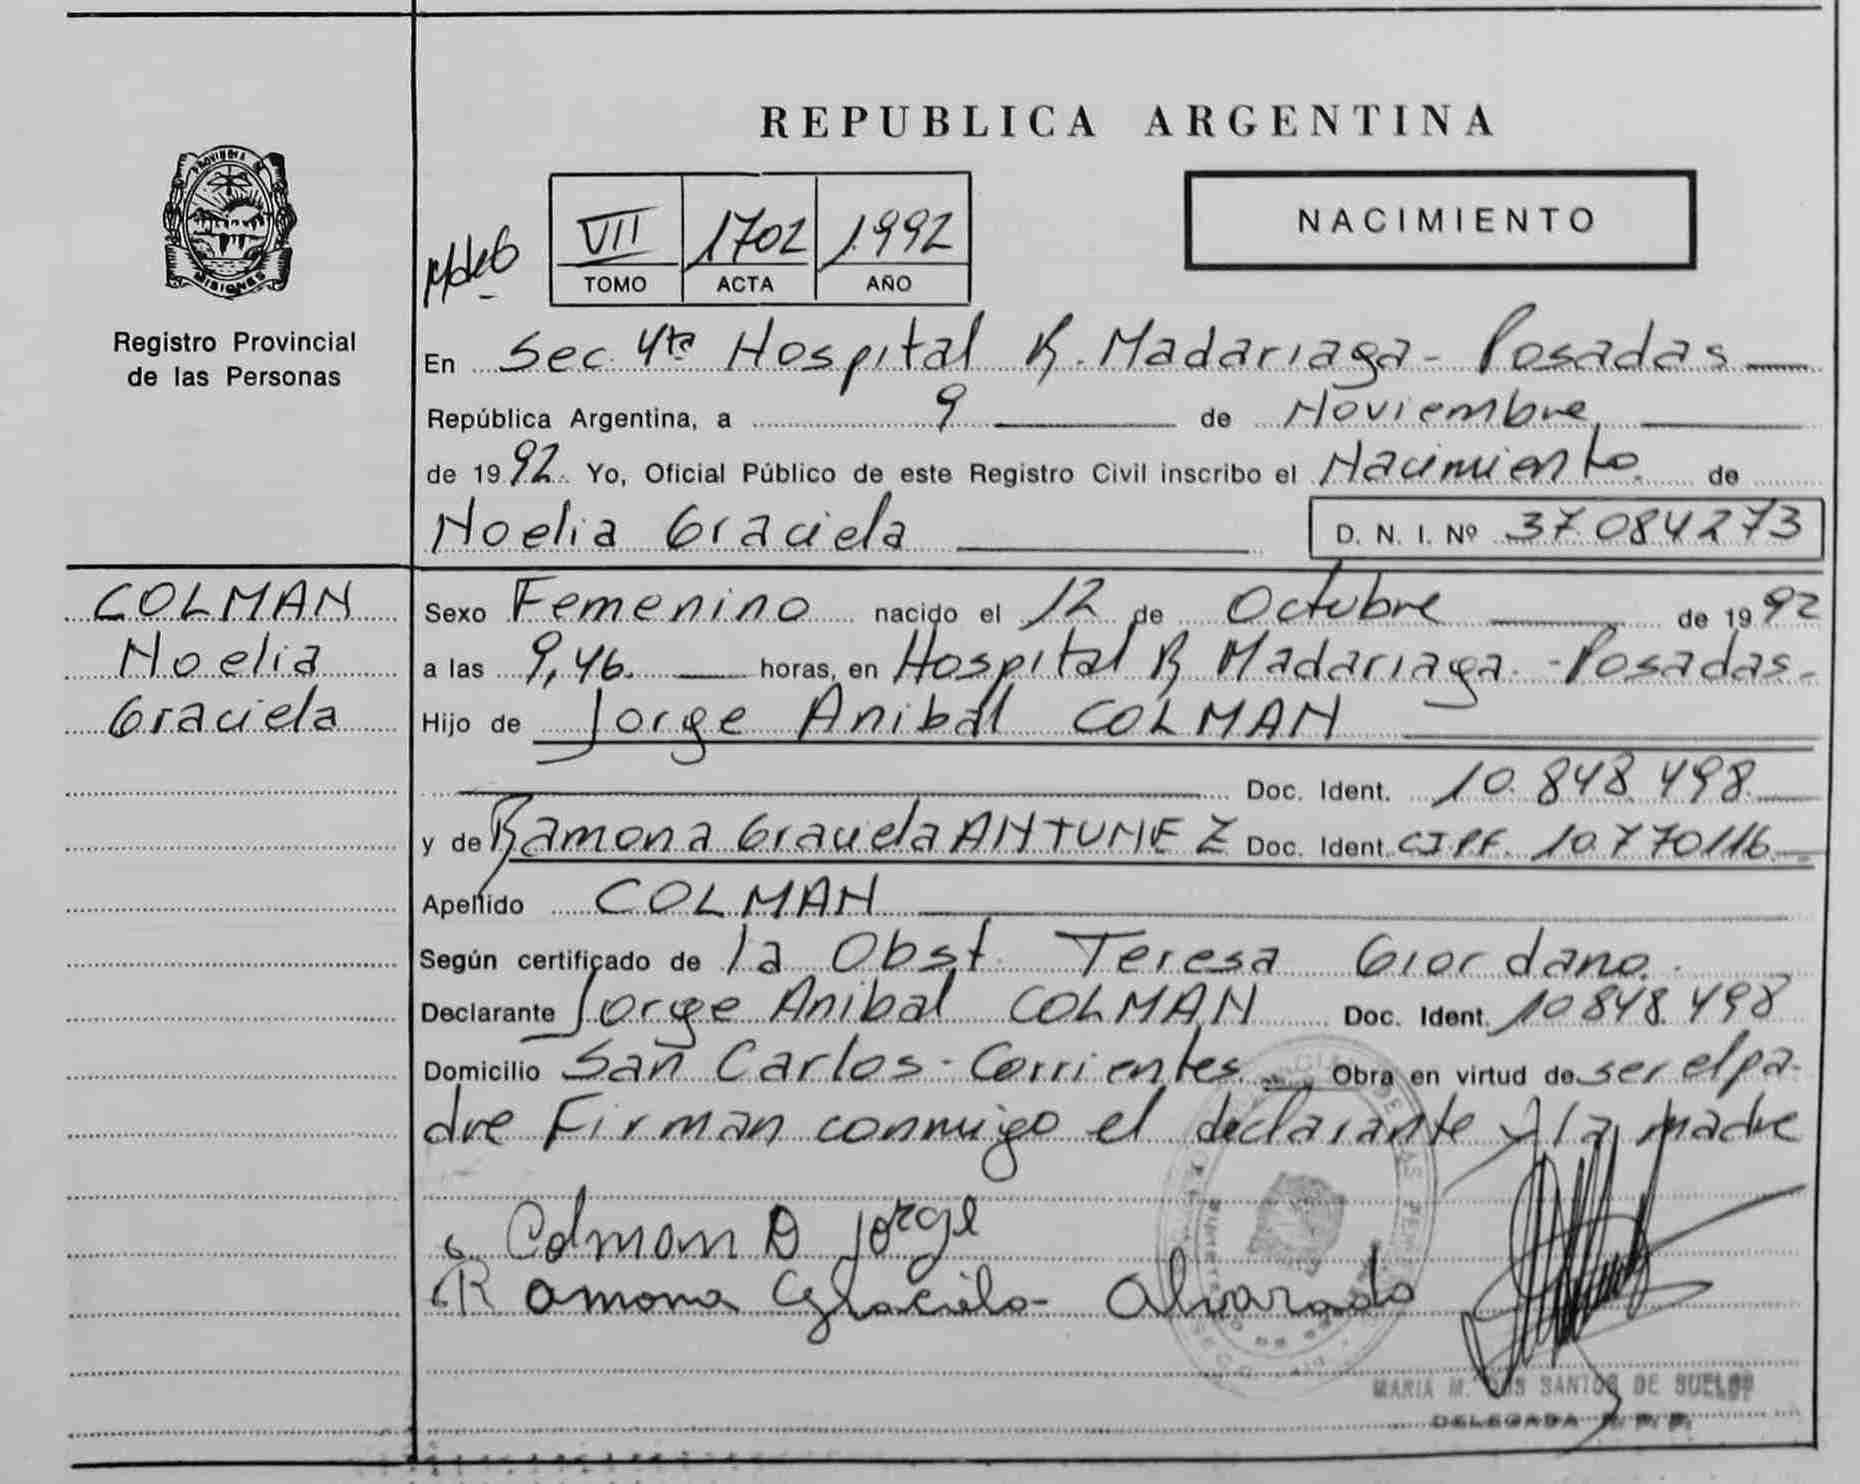 REPUBLICA ARGENTINA
PROVINCIA DE
MISIONES
Registro Provincial
de las Personas
VII 1702 1.992
TOMO ACTA AÑO
NACIMIENTO
En Sec. 4ta Hospital R. Madariaga - Posadas
República Argentina, a 9 de Noviembre
de 1992. Yo, Oficial Público de este Registro Civil inscribo el Nacimiento de
Noelia Graciela D. N. I. Nº 37.084273
COLMAN
Noelia
Graciela
Sexo Femenino nacido el 12 de Octubre de 1992
a las 9,46. horas, en Hospital R Madariaga. - Posadas -
Hijo de Jorge Anibal COLMAN
Doc. Ident. 10.848.498
y de Ramona Graciela ANTUNEZ Doc. Ident. CIPF. 10.770116
Apellido COLMAN
Según certificado de la Obst. Teresa Giordano.
Declarante Jorge Anibal COLMAN Doc. Ident. 10.848.498
Domicilio San Carlos - Corrientes Obra en virtud de ser el pa-
dre Firman conmigo el declarante y la madre
Colman A Jorge
Ramona Graciela Alvarado
MARIA M. DOS SANTOS DE SUELDO
DELEGADA R. P. P.